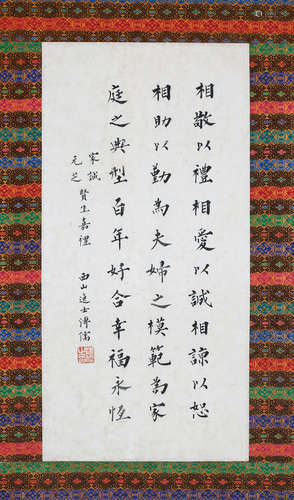 相敬以禮相愛以誠相諒以恕
相助以勤為夫婦之模範為家
庭之典型百年好合幸福永恆
家誠
元芝 賢生嘉禮
西山逸士溥儒